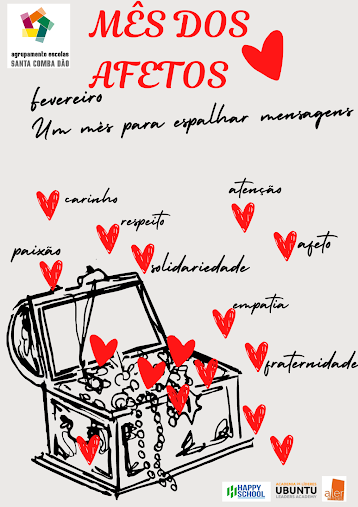 MÊS DOS
AFETOS
agrupamento escolas
SANTA COMBA DÃO
fevereiro
Um mês para espalhar mensagens
carinho
atenção
respeito
paixão
afeto
solidariedade
empatia
fraternidade
HAPPY
SCHOOL
ACADEMIA DE LÍDERES
UBUNTU
LEADERS ACADEMY
ajer